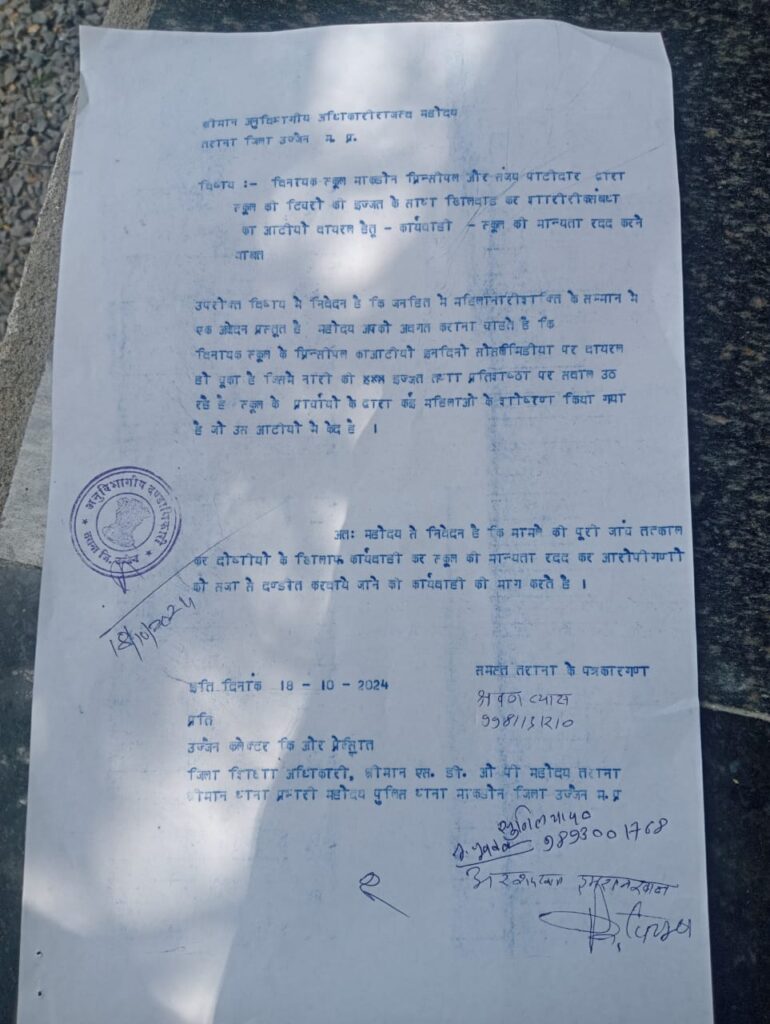 श्रीमान अनुविभागीय अधिकारीराजस्व महोदय
तराना जिला उज्जैन म. प्र.
विषय :- विनायक स्कूल माकडोन प्रिन्सीपल और संजय पाटीदार द्वारा
स्कूल की टिचरो की इज्जत के साथ खिलवाड कर शारीरीकसंबंधा
का आडीयो वायरल हेतू - कार्यवाही - स्कूल की मान्यता रदद करने
बाबत
उपरोक्त विषय मे निवेदन है कि जनहित मे महिलानारीशक्ति के सम्मान मे
एक अवेदन प्रस्तूत है महोदय अपको अवगत कराना चाहते है कि
विनायक स्कूल के प्रिन्सीपल काआडीयो इनदिनो सोसलमिडीया पर वायरल
हो चूका है जिसमे नारी की इज्जत तथा प्रतिष्ठा पर सवाल उठ
रहे है स्कूल के प्राचार्य के द्वारा कई महिलाओ के शोषण किया गया
है जो उस आडीयो मे कैद है ।
अतः महोदय से निवेदन है कि मामले की पूरी जांच तत्काल
कर दोषीयो के खिलाफ कार्यवाही कर स्कूल की मान्यता रदद कर आरोपीगणो
को सजा से दण्डीत करवाये जाने की कार्यवाही की माग करते है ।
अनुविभागीय दण्डाधिकारी
तराना जि. उज्जैन
18/10/2024
इति दिनांक 18 - 10 - 2024
समस्त तराना के पत्रकारगण
श्रवण व्यास
प्रति
उज्जैन कलेक्टर कि और प्रेसित
जिला शिक्षा अधिकारी, श्रीमान एस. डी. ओ पी महोदय तराना
श्रीमान थाना प्रभारी महोदय पुलिस थाना माकडोन जिला उज्जैन म. प्र
सुनिल
9893001768
इमरान खान